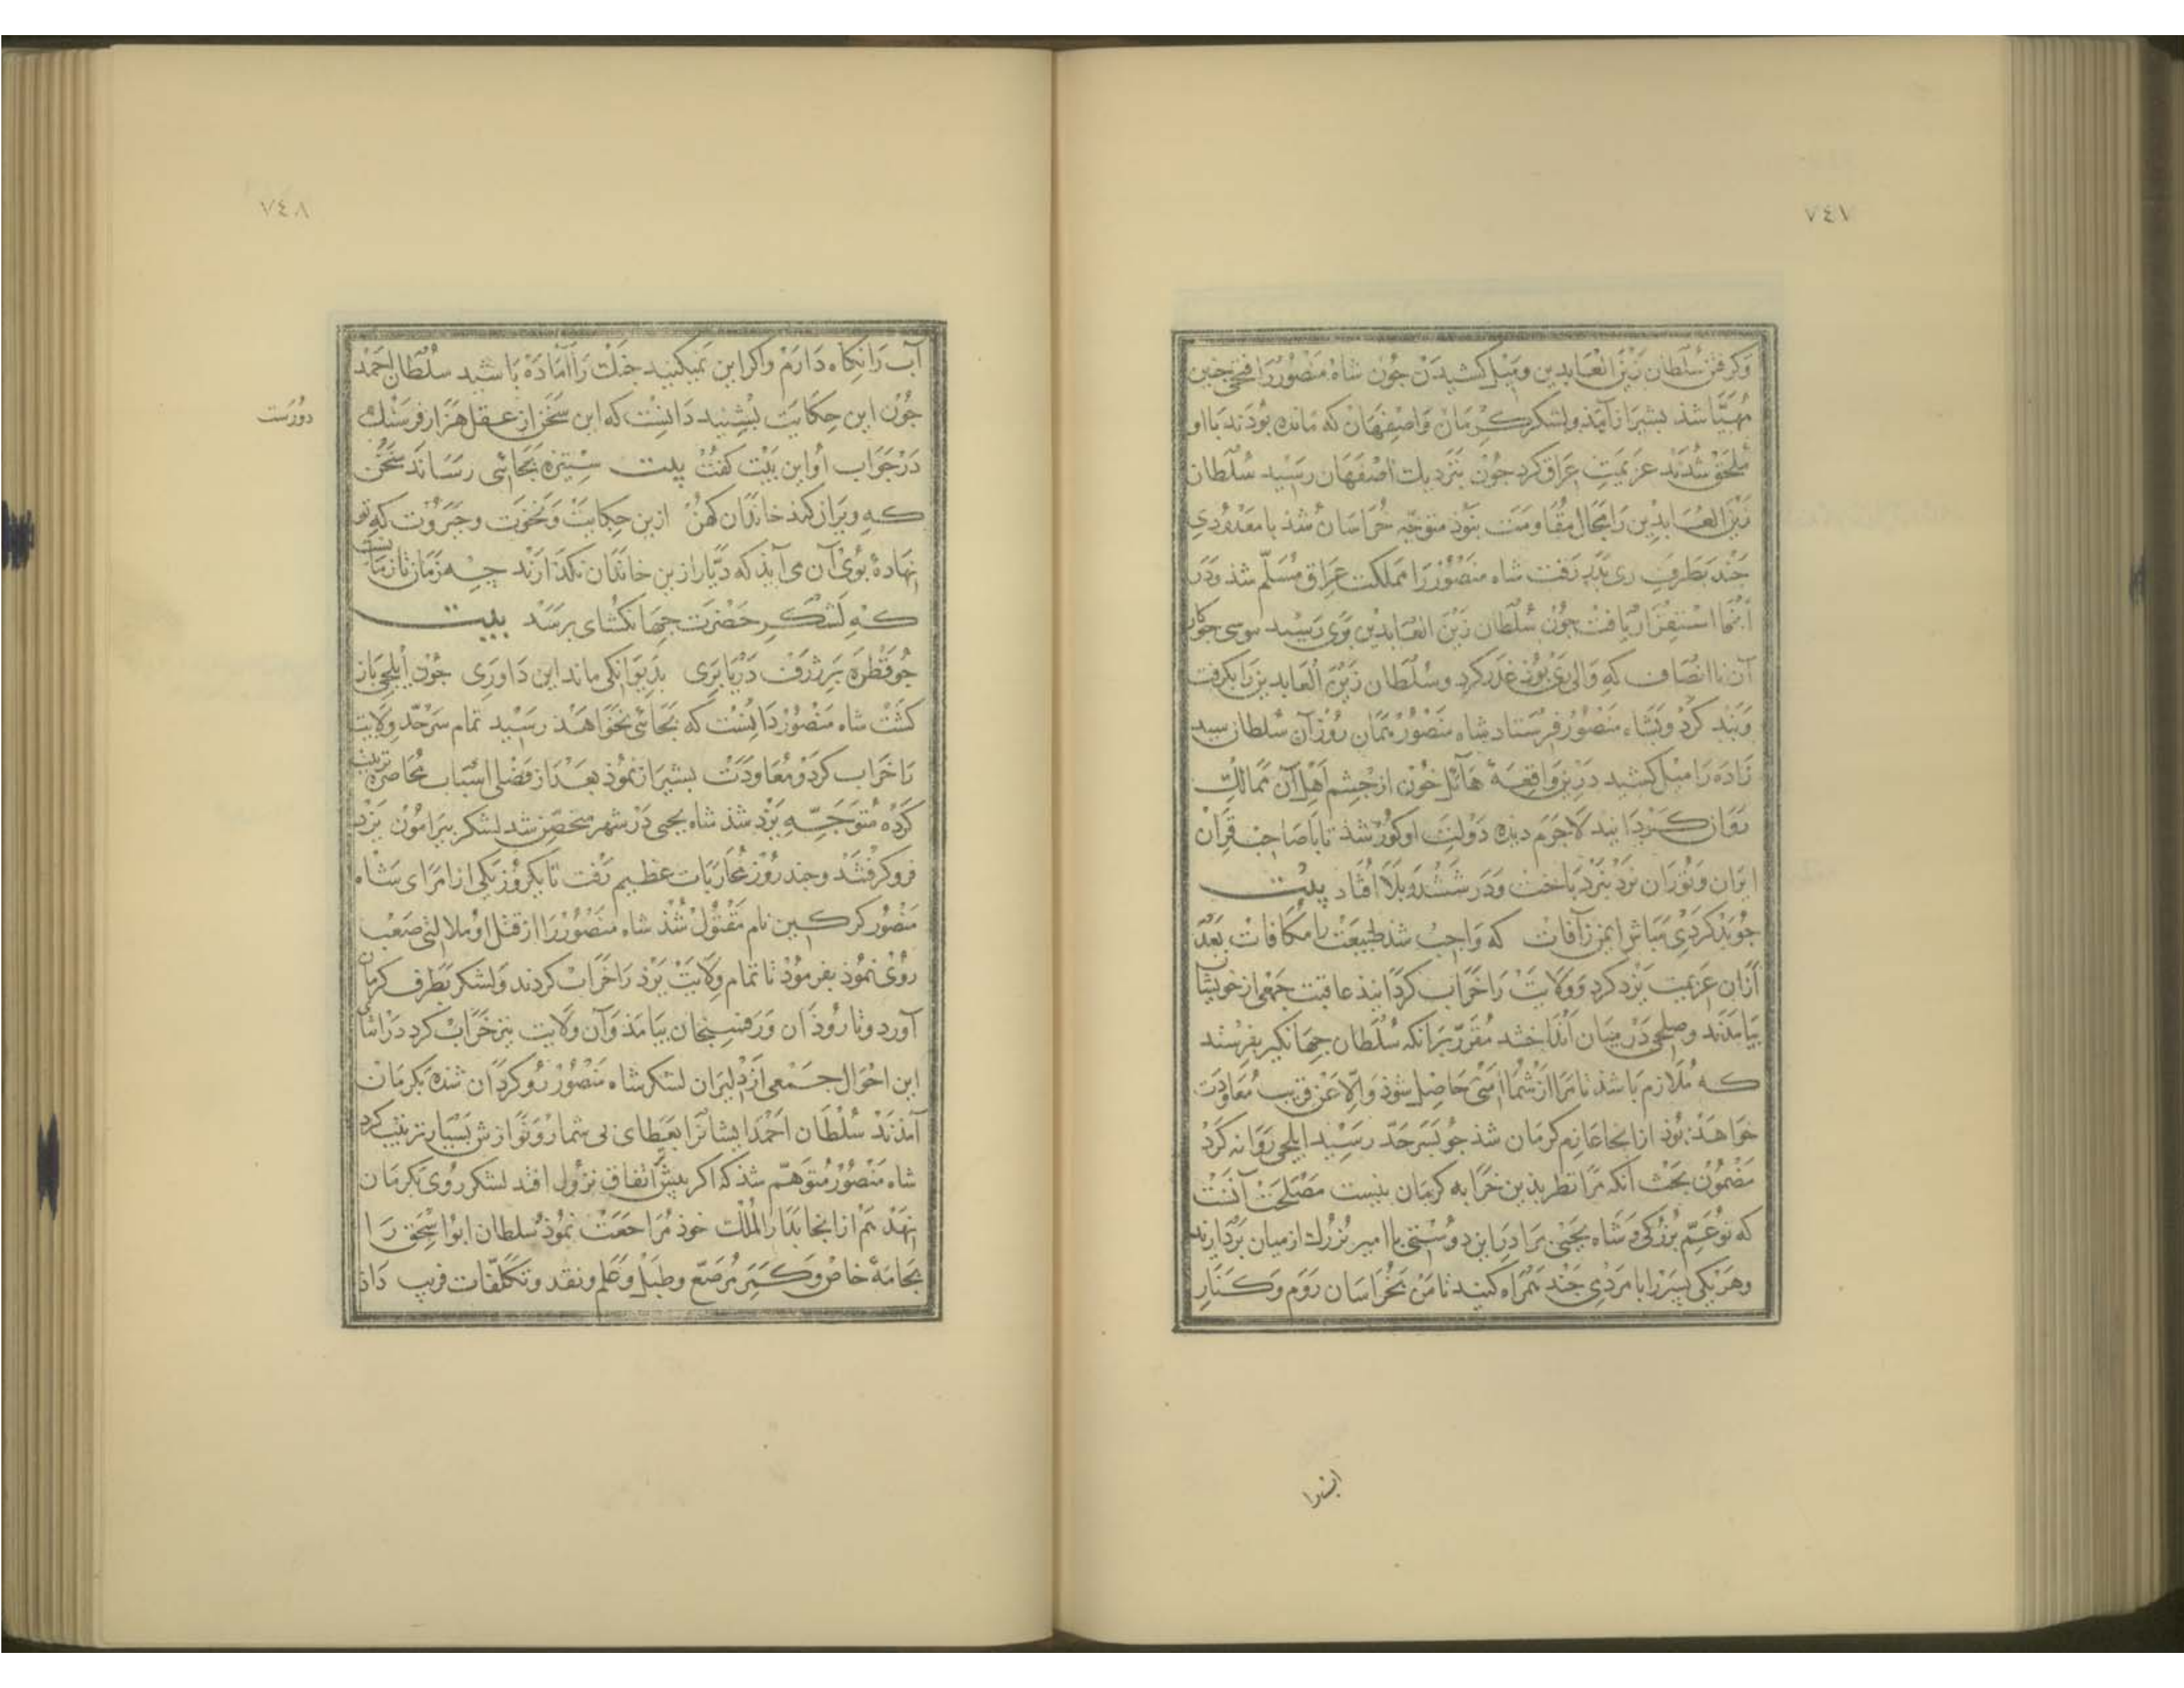 ٧٤٧
وکرفتن سلطان زین العابدین ومیل کشیدن جون شاه منصور را فتحی جنین
مهیا شذ بشیراز آمذ ولشکر کرمان واصفهان که مانده بودند با او
ملحق شدند عزیمت عراق کرد جون بنزدیك اصفهان رسید سلطان
زین العابدین را مجال مقاومت نبوذ متوجه خراسان شذ با معدودی
جند بطرف ری بدر رفت شاه منصور را مملکت عراق مسلم شذ ودر
آنجا استقرار یافت جون سلطان زین العابدین بری رسید موسی جوکار
آن ناانصاف که والی ری بوذ غدر کرد وسلطان زین العابدین را بکرفت
وبند کرد وبشاه منصور فرستاد شاه منصور همان روز آن سلطان سید
زاده را میل کشید درین واقعهٔ هائل خون از جشم اهل آن ممالك
روان کردانید لاجرم دیده دولت او کور شذ تا با صاحب قران
ایران وتوران نرد نبرد باخت ودر ششدر بلا افتاد بیت
جو بد کردی مباش ایمن زآفات که واجب شد طبیعت را مکافات بعد
ازان عزیمت یزد کرد وولایت را خراب کردانیذ عاقبت جمعی از خویشان
بیامدند وصلحی در میان انداختند مقرر برانکه سلطان جهانکیر بفرستند
که ملازم باشذ تا مرا از شما امنی حاصل شوذ والا عن قریب معاودت
خواهذ بوذ ازانجا عازم کرمان شذ جو بسرحد رسید ایلجی روانه کرد
مضمون بحث آنکه مرا نظر بذین خرابه کرمان نیست مصلحت آنست
که تو عم بزرکی وشاه یحیی برادر این دوستی با امیر بزرك از میان بردارند
وهر یکی پسر را با مردی جند همراه کنید تا من بخراسان روم وکنار
اب را

٧٤٨
آب را نکاه دارم واکر این نمیکنید جنك را آماده باشید سلطان احمد
جون این حکایت بشنید دانست که این سخن از عقل هزار فرسنك
دورست
در جواب او این بیت کفت بیت ستیزه بجائی رساند سخن
که ویران کند خاندان کهن ازین حکایت ونخوت وجبروت که تو
نهادهٔ بوی آن می آیذ که دیار ازین خاندان نکذارند جه زمان تا زمانست
که لشکر حضرت جهانکشای برسد بیت
جو قطره بر ژرف دریا بری بدیوانکی ماند این داوری جون ایلجی باز
کشت شاه منصور دانست که بجائی نخواهذ رسید تمام سرحد ولایت
را خراب کرد ومعاودت بشیراز نموذ بعد از فصلی اسباب محاصره ترتیب
کرده متوجه یزد شذ شاه یحیی در شهر متحصن شد لشکر بیرامون یزد
فرو کرفتند وجند روز محاربات عظیم رفت تا یکروز یکی از امرای شاه
منصور کرکین نام مقتول شذ شاه منصور را از قتل او ملالتی صعب
روی نموذ بفرموذ تا تمام ولایت یزد را خراب کردند ولشکر بطرف کرمان
آورد وتا روذان ورفسنجان بیامذ وآن ولایت نیز خراب کرد در اثنای
این احوال جمعی از دلیران لشکر شاه منصور رو کردان شده بکرمان
آمذند سلطان احمد ایشانرا بعطای بی شمار ونوازش بسیار تربیت کرد
شاه منصور متوهم شذ که اکر بیش اتفاق نزول افتد لشکر روی بکرمان
نهد هم ازانجا بدار الملك خوذ مراجعت نموذ سلطان ابو اسحق را
بجامهٔ خاص وکمر مرصع وطبل وعلم ونقد وتکلفات فریب داذ